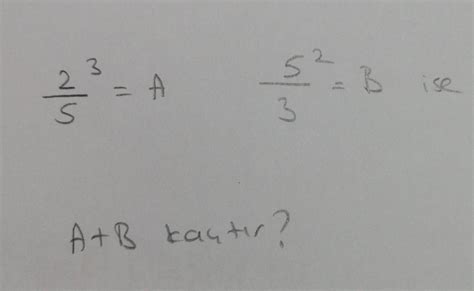 2³/5 = A 5²/3 = B ise
A+B kaçtır?